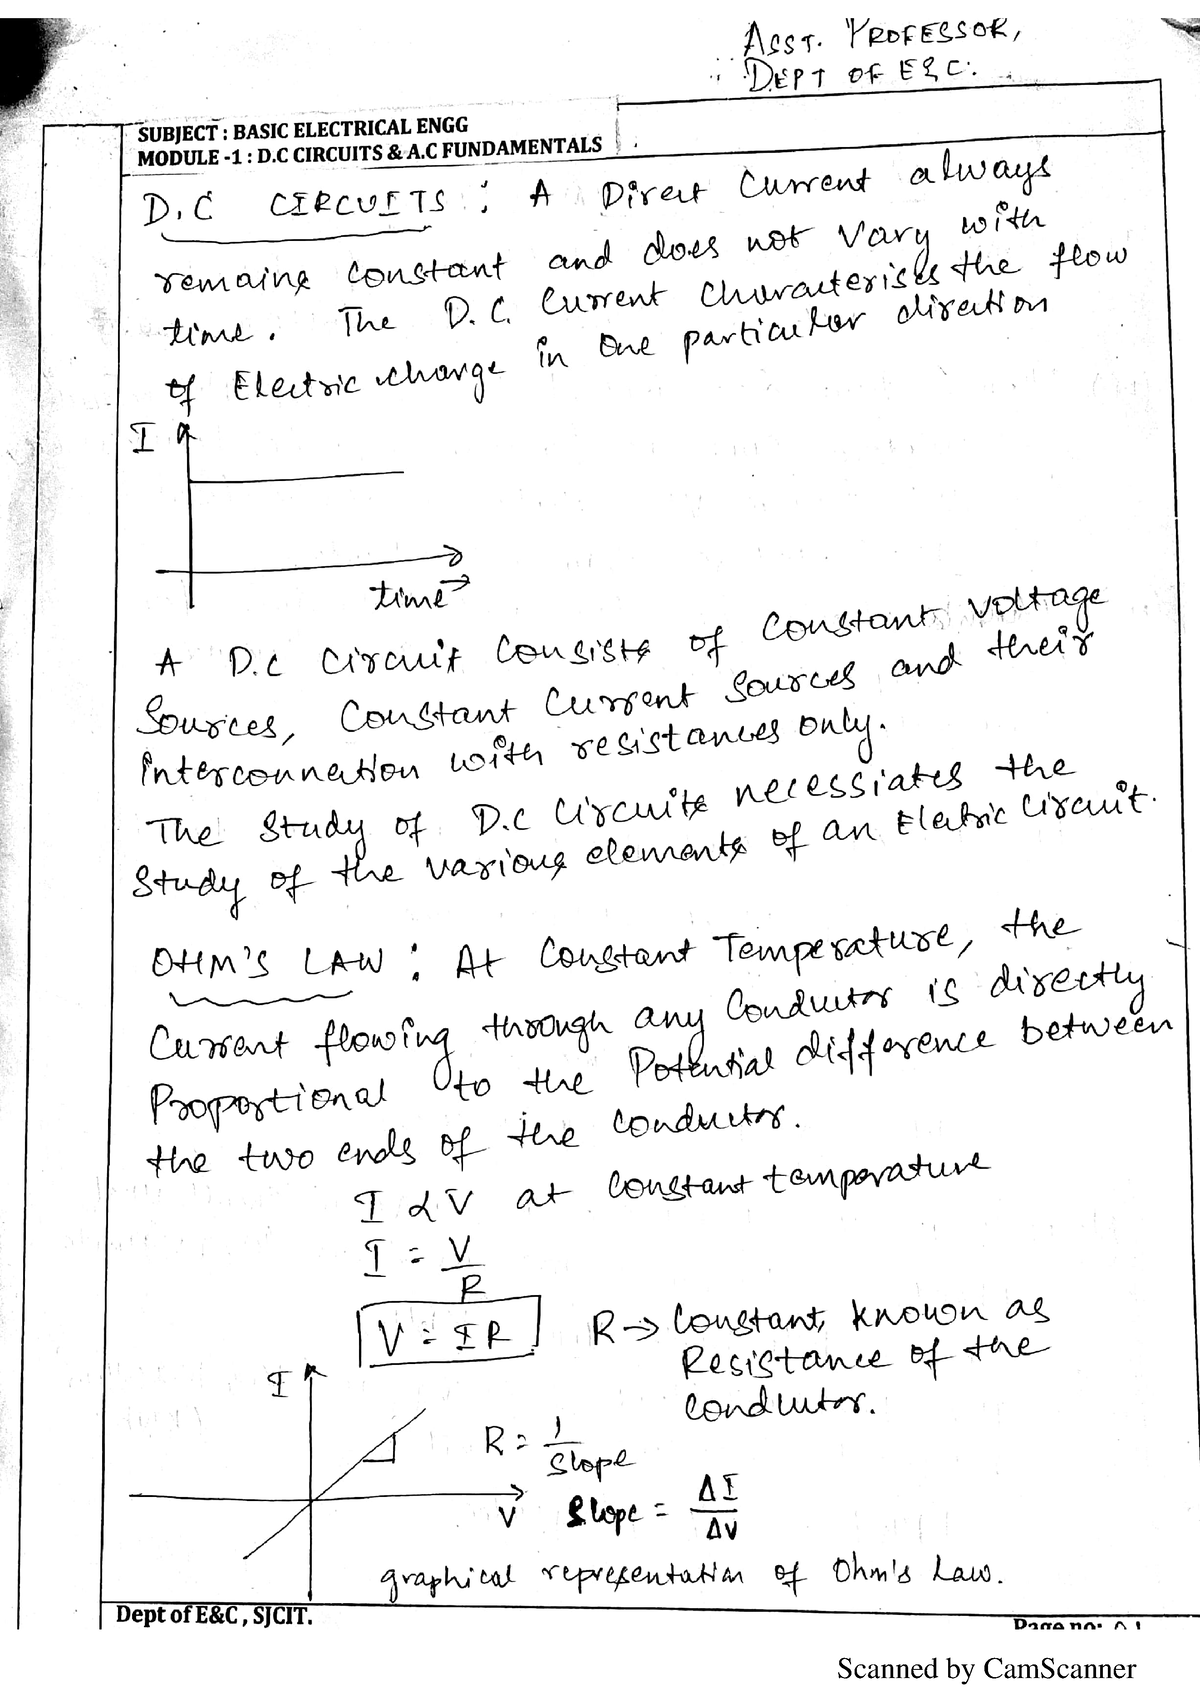 ASST. PROFESSOR,
DEPT OF E&C.
SUBJECT : BASIC ELECTRICAL ENGG
MODULE -1 : D.C CIRCUITS & A.C FUNDAMENTALS
D.C CIRCUITS : A Direct Current always
remains constant and does not vary with
time. The D.C. Current characterises the flow
of Electric charge in one particular direction
I
time→
A D.C circuit consists of constant voltage
Sources, Constant Current Sources and their
interconnection with resistances only.
The Study of D.C Circuits necessiates the
Study of the various elements of an Electric Circuit.
OHM'S LAW : At Constant Temperature, the
Current flowing through any Conductor is directly
Proportional to the Potential difference between
the two ends of the conductor.
I α V at constant temperature
I = V/R
V = IR R → Constant, known as
Resistance of the
conductor.
I
R = 1/Slope
V Slope = ΔI/ΔV
graphical representation of Ohm's Law.
Dept of E&C , SJCIT. Page no:
Scanned by CamScanner